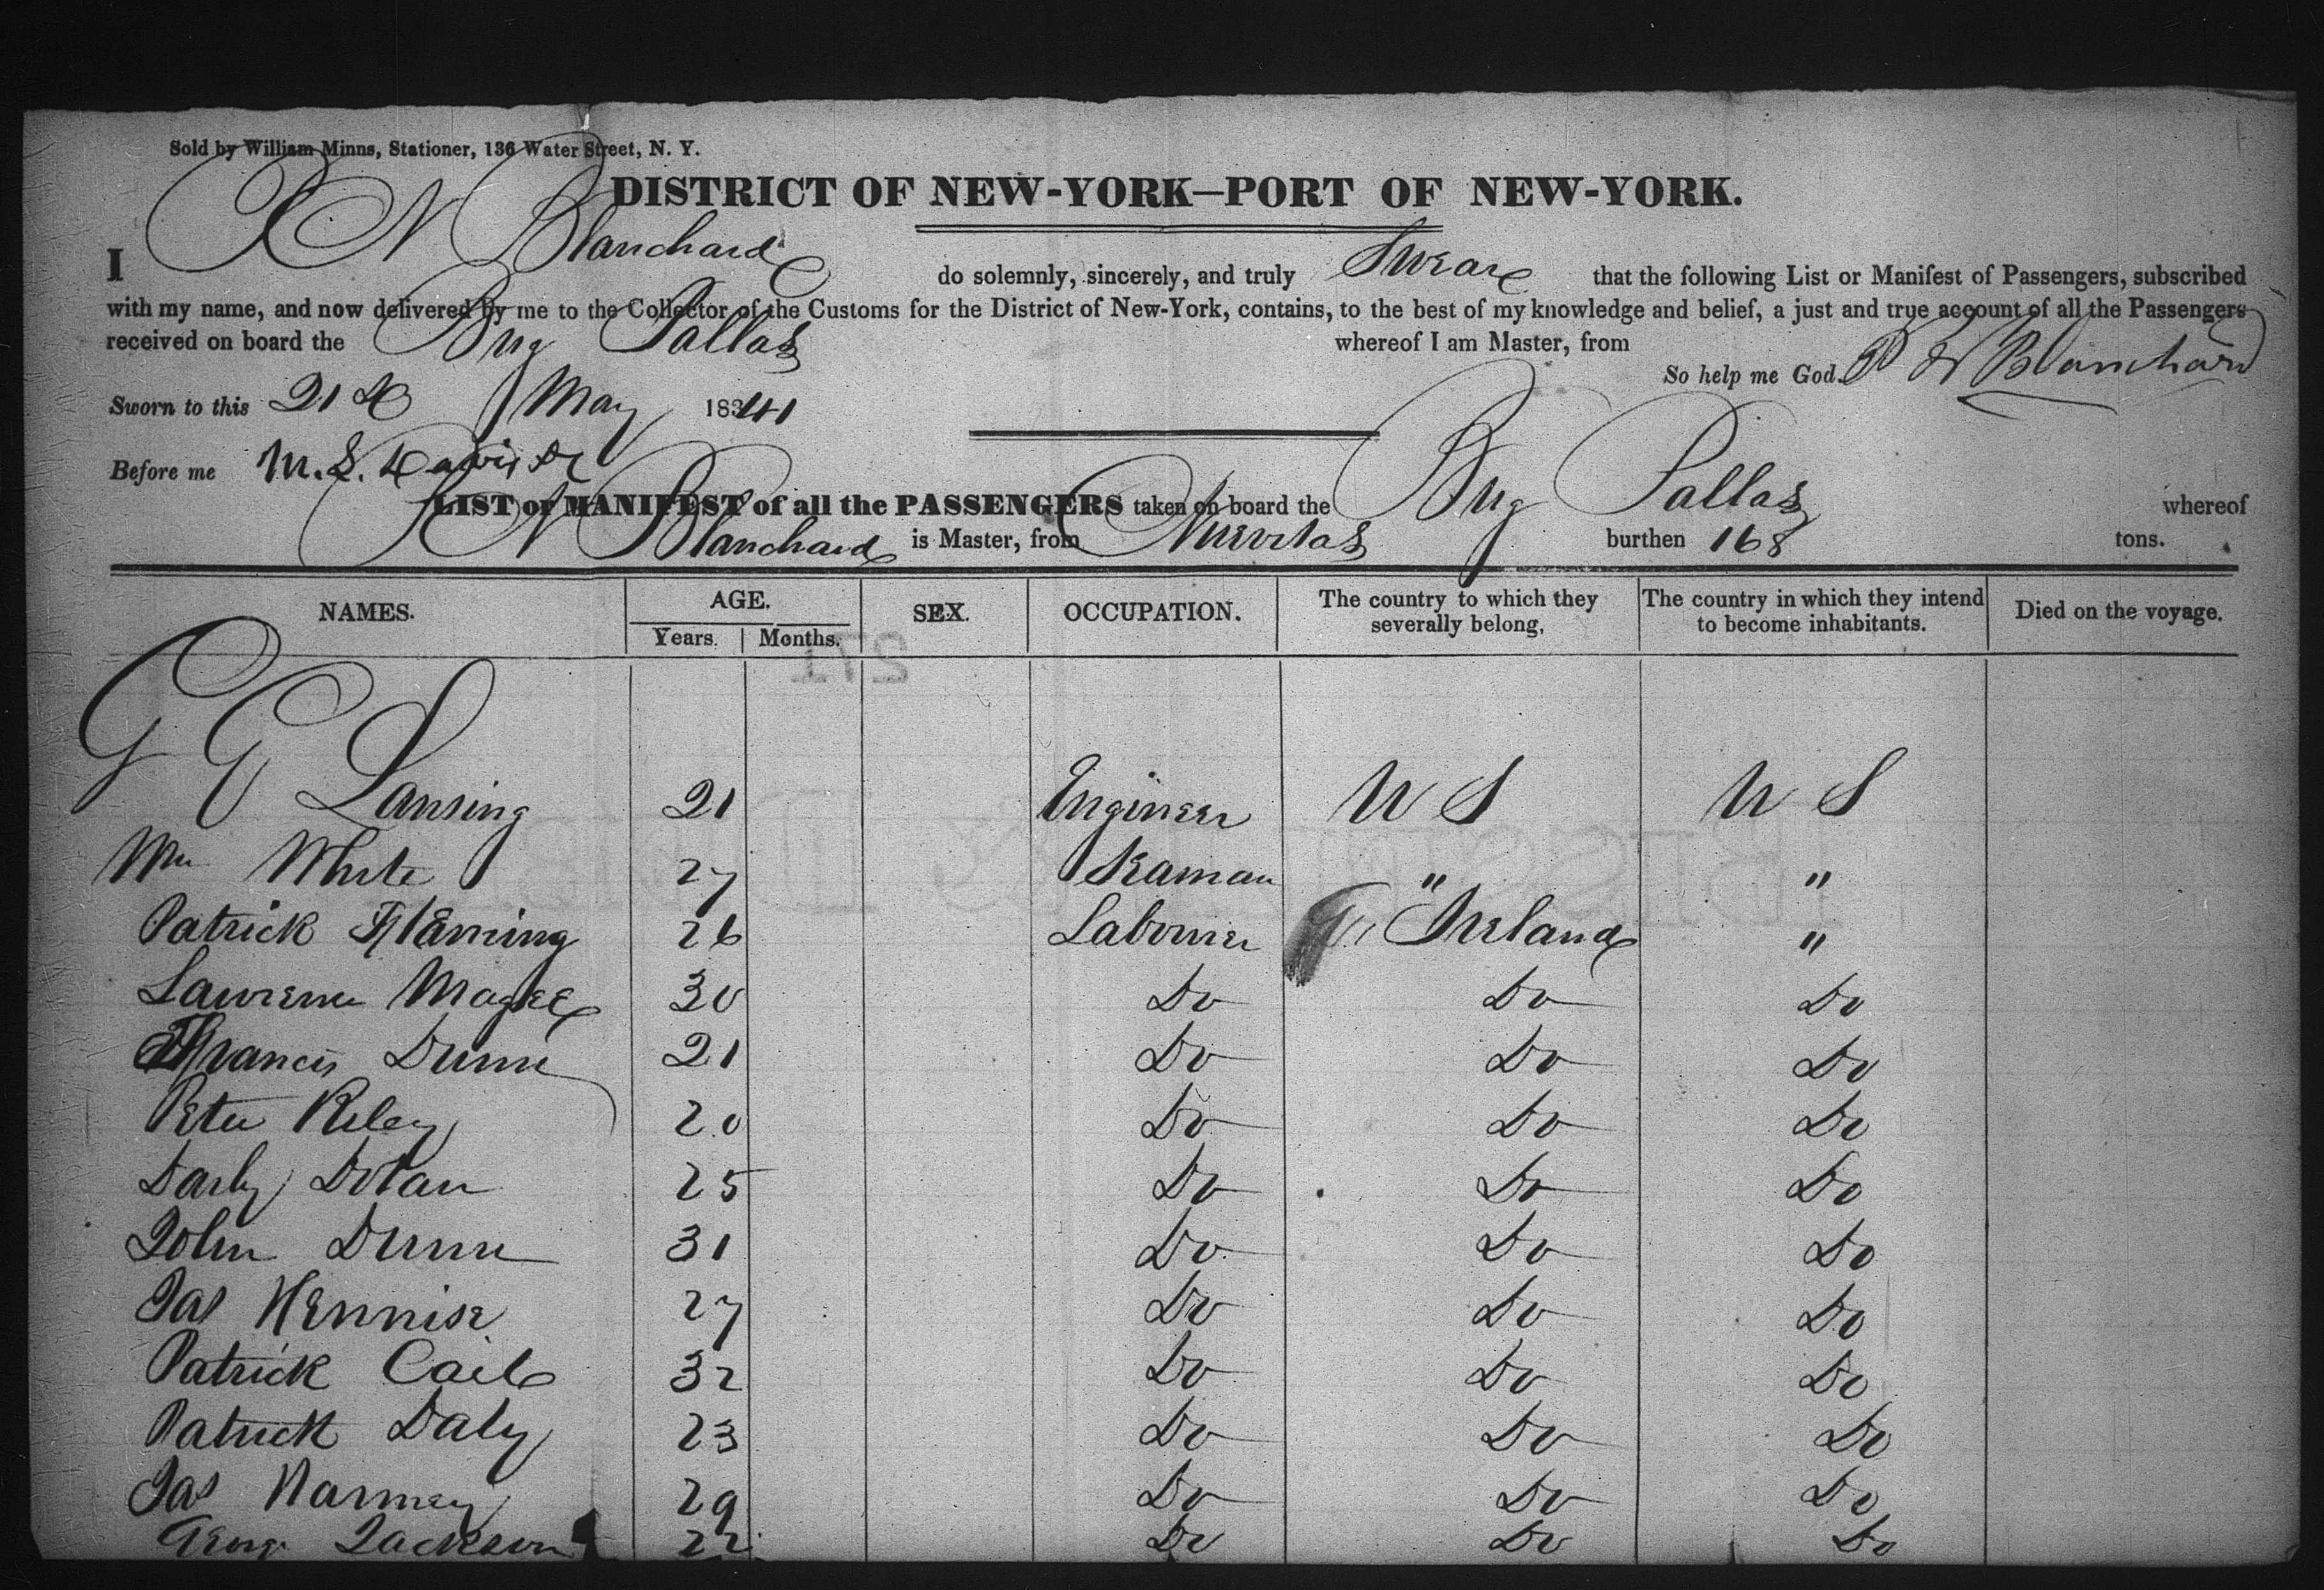 Sold by William Minns, Stationer, 136 Water Street, N. Y.
DISTRICT OF NEW-YORK—PORT OF NEW-YORK.
I P N Blanchard do solemnly, sincerely, and truly Swear that the following List or Manifest of Passengers, subscribed
with my name, and now delivered by me to the Collector of the Customs for the District of New-York, contains, to the best of my knowledge and belief, a just and true account of all the Passengers
received on board the Brig Pallas whereof I am Master, from
So help me God. P N Blanchard
Sworn to this 21st May 1841
Before me M. L. Davis
LIST or MANIFEST of all the PASSENGERS taken on board the Brig Pallas whereof
P N Blanchard is Master, from Nuevitas burthen 168 tons.
NAMES. AGE. SEX. OCCUPATION. The country to which they severally belong, The country in which they intend to become inhabitants. Died on the voyage.
Years. Months.
271
G Lansing 21 Engineer U S U S
Wm White 27 Seaman " "
Patrick Fleming 26 Labourer Ireland "
Lawrence Magee 30 Do Do Do
Francis Dunn 21 Do Do Do
Peter Riley 20 Do Do Do
Darby Dolan 25 Do Do Do
John Dunn 31 Do Do Do
Jas Hennise 27 Do Do Do
Patrick 32 Do Do Do
Patrick Daly 23 Do Do Do
Jas 29 Do Do Do
George Jackson 22 Do Do Do